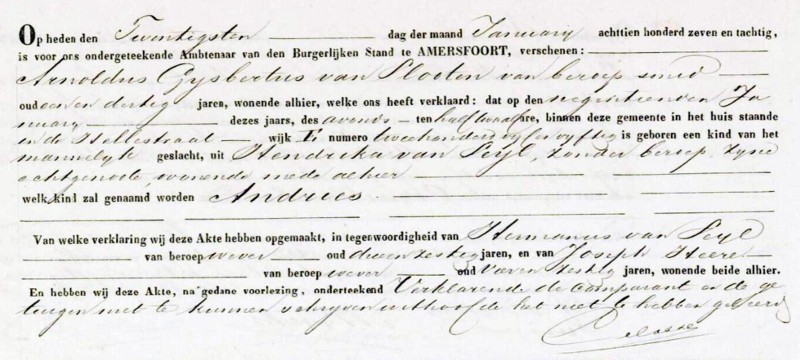 Op heden den Twentigsten dag der maand January achttien honderd zeven en tachtig,
is voor ons ondergeteekende Ambtenaar van den Burgerlijken Stand te AMERSFOORT, verschenen:
Arnoldus Gysbertus van Slooten van beroep smid
oud een en dertig jaren, wonende alhier, welke ons heeft verklaard: dat op den negentienden Ja
nuary dezes jaars, des avonds ten half twaalf ure, binnen deze gemeente in het huis staande
in de Hellestraat wijk E numero tweehonderd vyf en vyftig is geboren een kind van het
mannelyk geslacht, uit Hendrika van Seyl, zonder beroep, zyne
echtgenoote, wonende mede alhier
welk kind zal genaamd worden Andries.
Van welke verklaring wij deze Akte hebben opgemaakt, in tegenwoordigheid van Hermanus van Seyl
van beroep wever oud drie en zestig jaren, en van Joseph Heere
van beroep wever oud vier en zestig jaren, wonende beide alhier.
En hebben wij deze Akte, na gedane voorlezing, onderteekend Verklarende de comparant en de ge
tuigen niet te kunnen schryven uit hoofde het niet te hebben geleerd